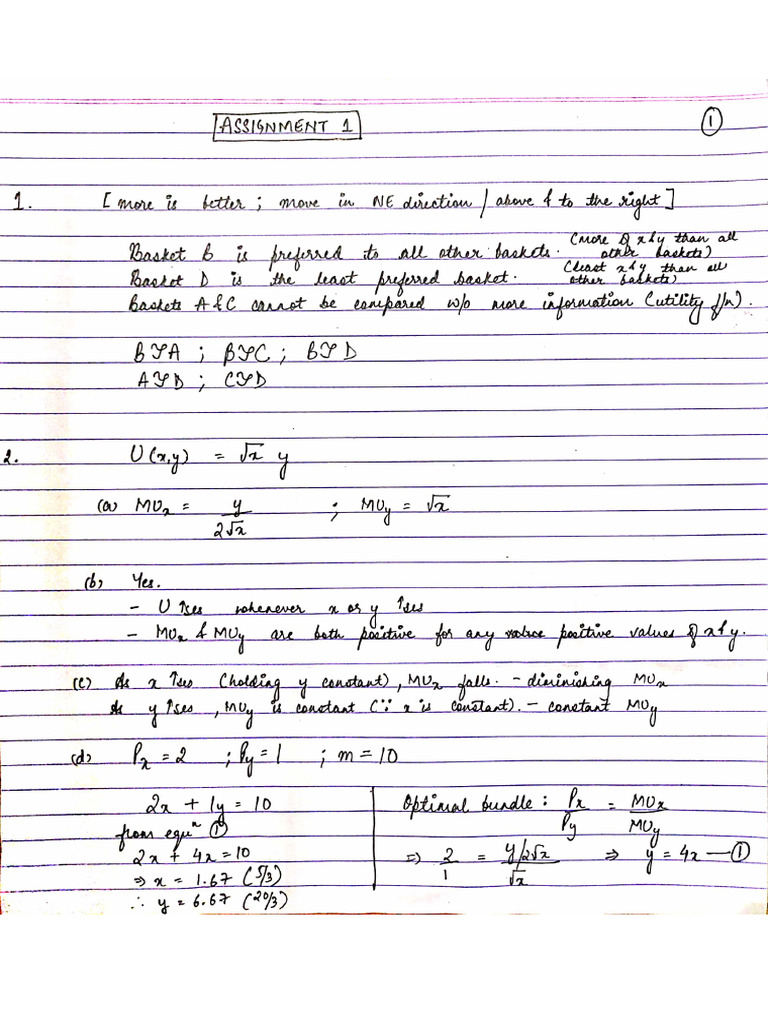 ASSIGNMENT 1
①
1. [more is better ; move in NE direction / above & to the right]
Basket B is preferred to all other baskets. (more of x & y than all other baskets)
Basket D is the least preferred basket. (least x & y than all other baskets)
Baskets A & C cannot be compared w/o more information (utility f/n).
B≻A ; B≻C ; B≻D
A≻D ; C≻D
2. U(x,y) = √x y
(a) MUx = y/2√x ; MUy = √x
(b) Yes.
- U ↑ses whenever x or y ↑ses
- MUx & MUy are both positive for any positive values of x & y.
(c) As x ↑ses (holding y constant), MUx falls. - diminishing MUx
As y ↑ses, MUy is constant (∵ x is constant). - constant MUy
(d) Px = 2 ; Py = 1 ; m = 10
2x + 1y = 10
from equⁿ ①
2x + 4x = 10
⇒ x = 1.67 (5/3)
∴ y = 6.67 (20/3)
Optimal bundle : Px/Py = MUx/MUy
⇒ 2/1 = y/2√x / √x ⇒ y = 4x — ①